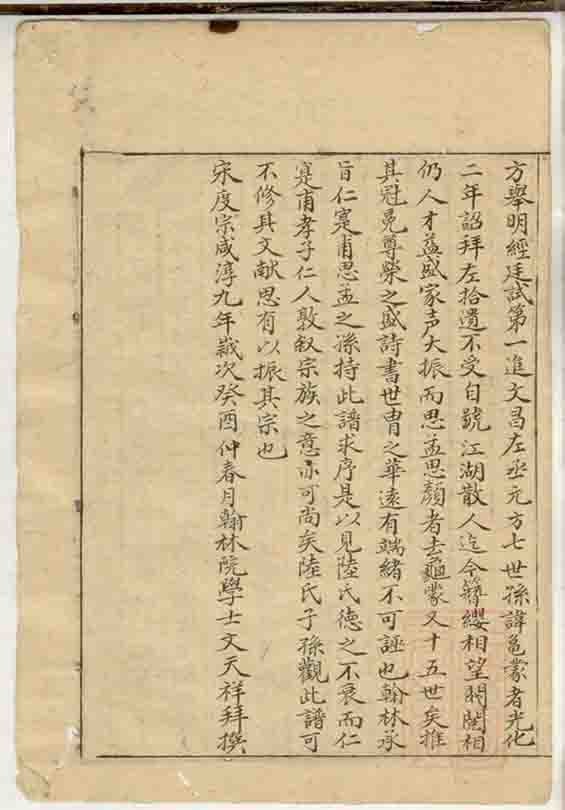 方舉明經廷試第一進文昌左丞元方七世孫諱龜蒙者光化
二年詔拜左拾遺不受自號江湖散人迄今簪纓相望閥閱相
仍人才益盛家声大振而思孟思顏者去龜蒙又十五世矣推
其冠冕尊榮之盛詩書世冑之華遠有端緒不可誣也翰林承
旨仁寔甫思孟之孫持此譜求序是以見陸氏德之不衰而仁
寔甫孝子仁人敦叙宗族之意亦可尚矣陸氏子孫觀此譜可
不修其文献思有以振其宗也
宋度宗咸淳九年歲次癸酉仲春月翰林院學士文天祥拜撰